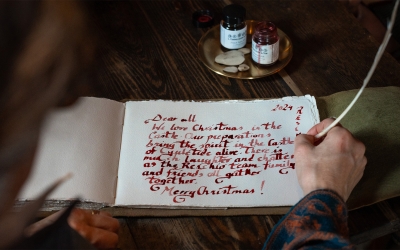 2024
Dear all
We love Christmas in the
Castle. Our preparations
bring the spirit in the Castle
of alive. There is
much laughter and chatter
as the team, family
and friends all gather
together.
Merry Christmas!